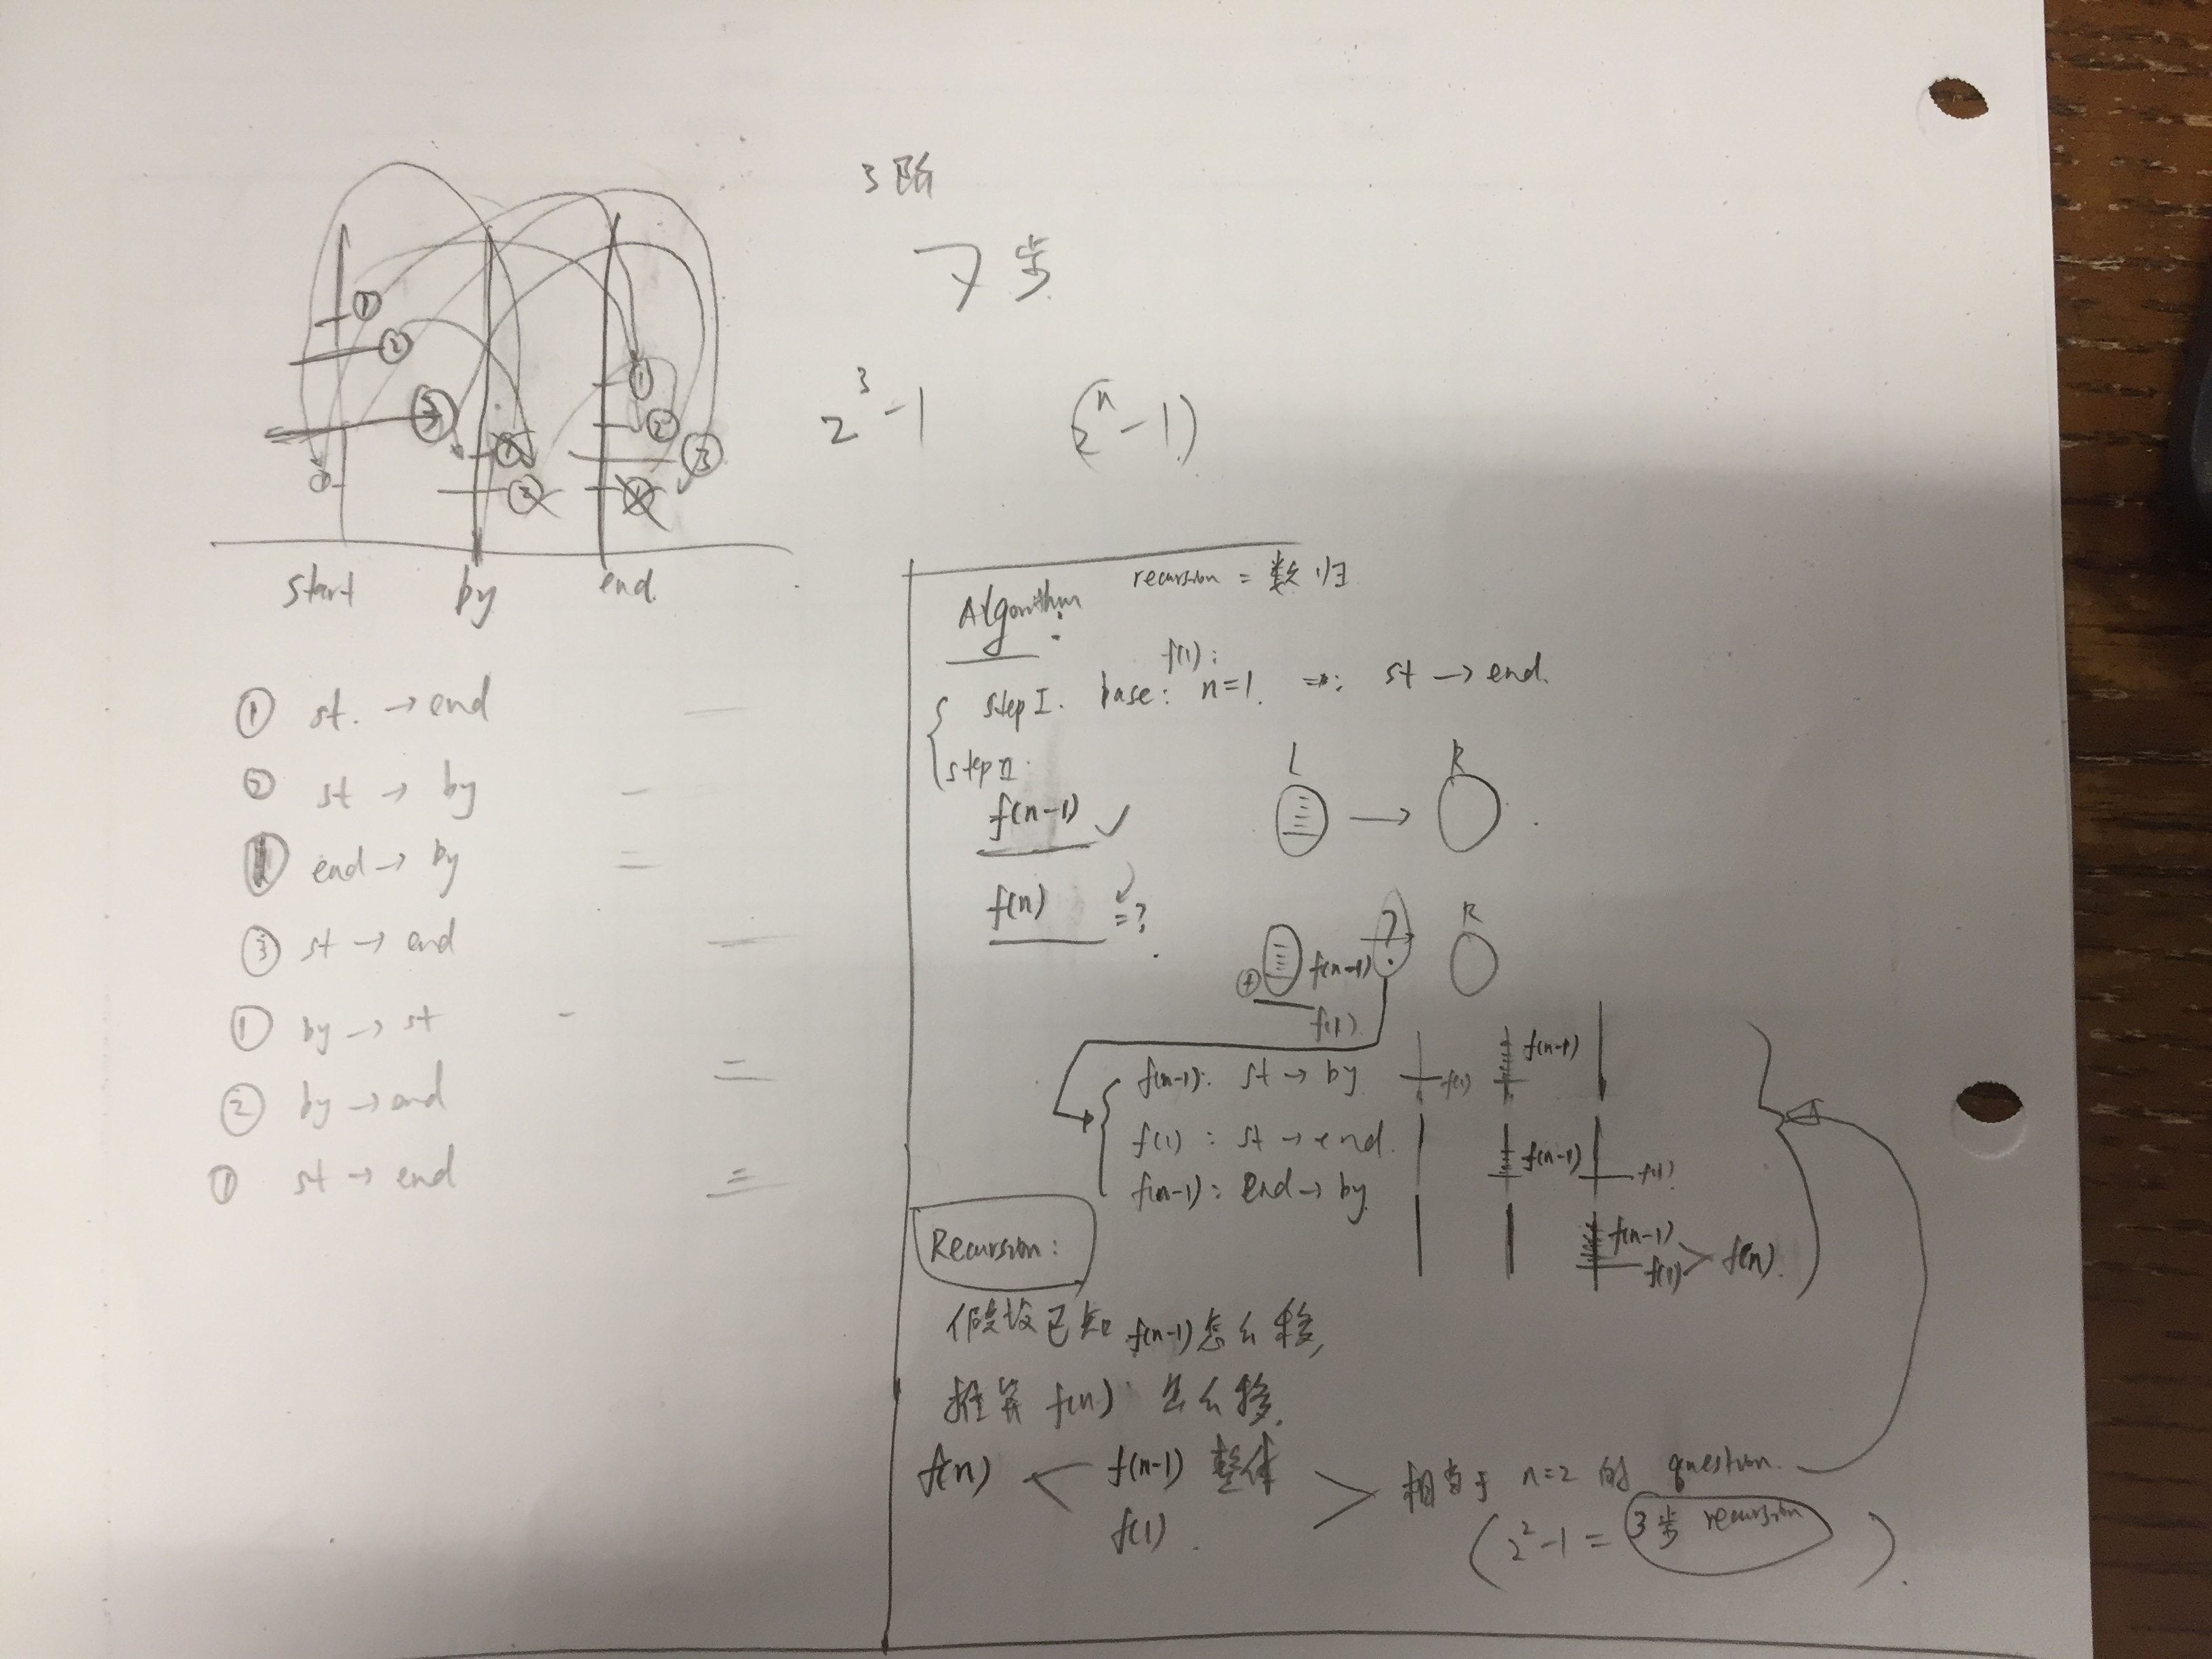 3阶
7步
① ② ③ ① ② ① ② ③ ①
2³-1 (2ⁿ-1)
start by end
① st. → end
② st → by
① end → by
③ st → end
① by → st
② by → end
① st → end
Algorithm: recursion = 数归
f(1):
step I. base: n=1. ⇒: st → end.
step II.
L R
f(n-1) ✓ →
f(n) =?
R
⊕ f(n-1) ?
f(1)
f(n-1): st → by f(1) f(n-1)
f(1): st → end. f(n-1) f(1)
f(n-1): end → by f(n-1) f(1) > f(n).
Recursion:
假设已知 f(n-1) 怎么移,
推算 f(n) 怎么移.
f(n) < f(n-1) 整体 > 相当于 n=2 的 question.
f(1).
(2²-1 = 3步 recursion).